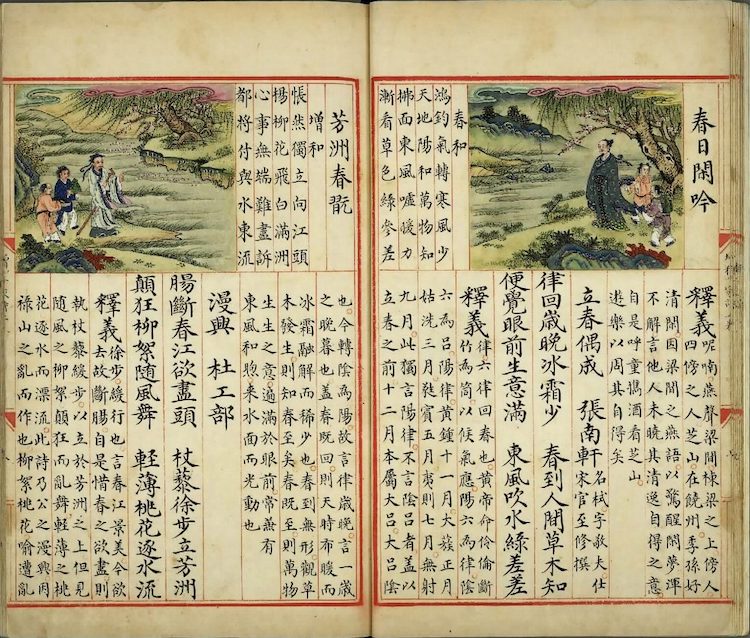 春日閑吟
春和
鴻鈞氣轉寒風少
天地陽和萬物知
拂面東風噓暖力
漸看草色綠參差
釋義 呢喃燕聲梁間棟梁之上傍人
四傍之人芝山在饒州季孫好
清閑因梁間之燕語以驚醒閒夢渾
不解言他人未曉其清逸自得之意
自是呼童攜酒看芝山
遊樂以周其自得矣
立春偶成 張南軒 名栻字敬夫仕
宋官至修撰
律回歲晚冰霜少 春到人間草木知
便覺眼前生意滿 東風吹水綠差差
釋義 律六律回春也黃帝命伶倫斷
竹為筒以候氣應陽六為律陰
六為呂陽律黃鐘十一月大簇正月
姑洗三月蕤賓五月夷則七月無射
九月此獨言陽律不言陰呂者蓋以
立春之前十二月本屬大呂大呂陰
芳洲春翫
增和
悵然獨立向江頭
楊柳花飛白滿洲
心事無端難盡訴
都將付與水東流
也今轉陰為陽故言律歲晚言一歲
之晚暮也蓋春既回則天時布暖而
冰霜融解而稀少也春到無形觀草
木發生則知春至矣春既至則萬物
生生之意遍滿於眼前常兼有
東風和煦來水面而光動也
漫興 杜工部
腸斷春江欲盡頭 杖藜徐步立芳洲
顛狂柳絮隨風舞 輕薄桃花逐水流
釋義 徐步緩行也言春江景美今欲
去故斷腸自是惜春之欲盡則
執杖藜緩步以立於芳洲之上但見
隨風之柳絮顛狂而亂舞輕薄之桃
花逐水而漂流此詩乃公之漫興因
祿山之亂而作也柳絮桃花喻遭亂